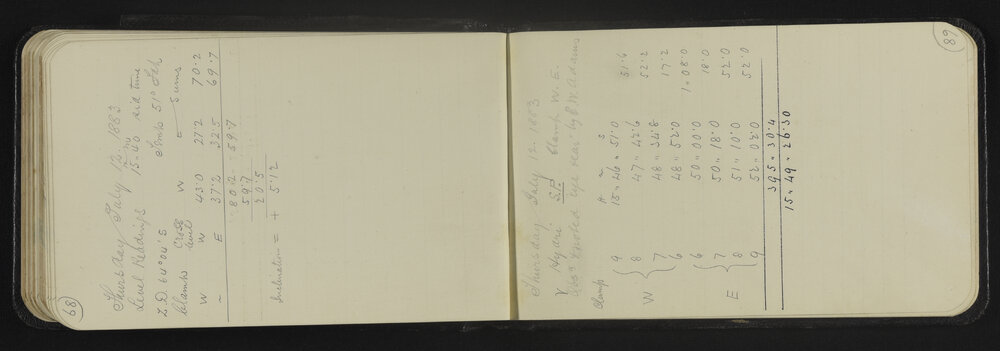 68
Thursday July 12. 1883
Level Readings 15h 40m sid time
Z.D. 64° 04' S Temp 51° Fah
Clamps Cross level W = Sums
W W 43.0 27.2 70.2
~ E 37.2 32.5 69.7
80.2 59.7
59.7
20.5
Inclination = + 5.12
89
Thursday July 12. 1883
γ Hydri S.P. Clamp W. E.
Obsd & noted eye near by C. W. Adams
Clamp H m s
W 9 15 " 46 " 51.0 51.6
8 47 " 42.6 52.2
7 48 " 34.8 17.2
6 48 " 52.0 1.08.0
E 6 50 " 00.0 18.0
7 50 " 18.0 52.0
8 51 " 10.0 52.0
9 52 " 02.0
395 " 30.4
15 " 49 " 26.30